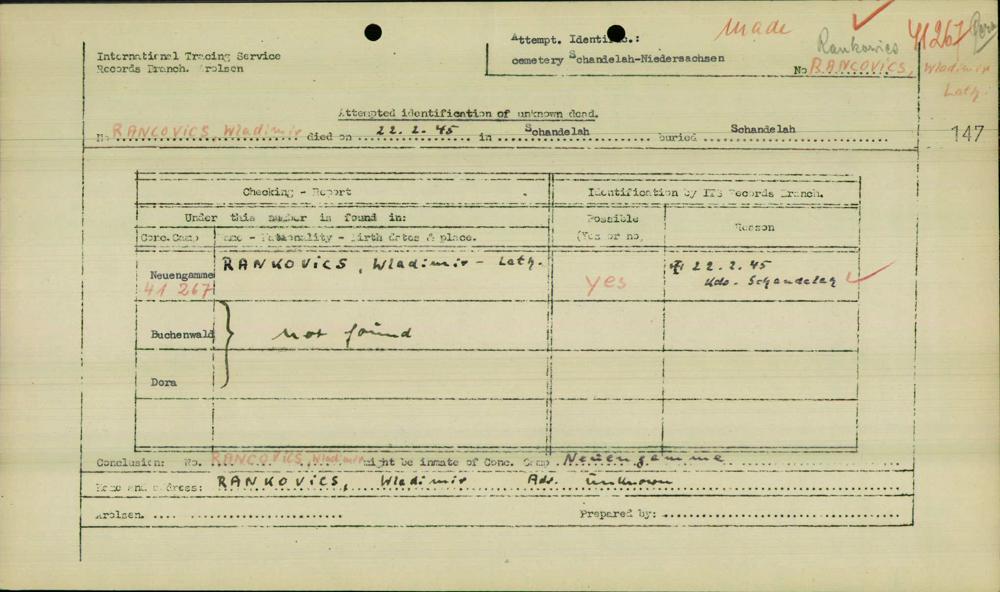 made
Rankowics 41267 Pers
International Tracing Service
Records Branch. Arolsen
Attempt. Identific.:
cemetery Schandelah-Niedersachsen
No RANCOVICS, Wladimir
Leth.
Attempted identification of unknown dead.
No RANCOVICS, Wladimir died on 22. 2. 45 in Schandelah buried Schandelah
147
Checking - Report
Identification by ITS Records Branch.
Under this number is found in:
Possible
(Yes or no)
Reason
Conc. Camp
Name - Nationality - Birth dates & place.
Neuengamme
41 267
RANKOVICS, Wladimir - Leth.
yes
22. 2. 45
Kdo. Schandelah
Buchenwald
not found
Dora
Conclusion: No. RANCOVICS, Wladimir might be inmate of Conc. Camp Neuengamme
Name and address: RANKOVICS, Wladimir Ads. unknown
Arolsen.
Prepared by: